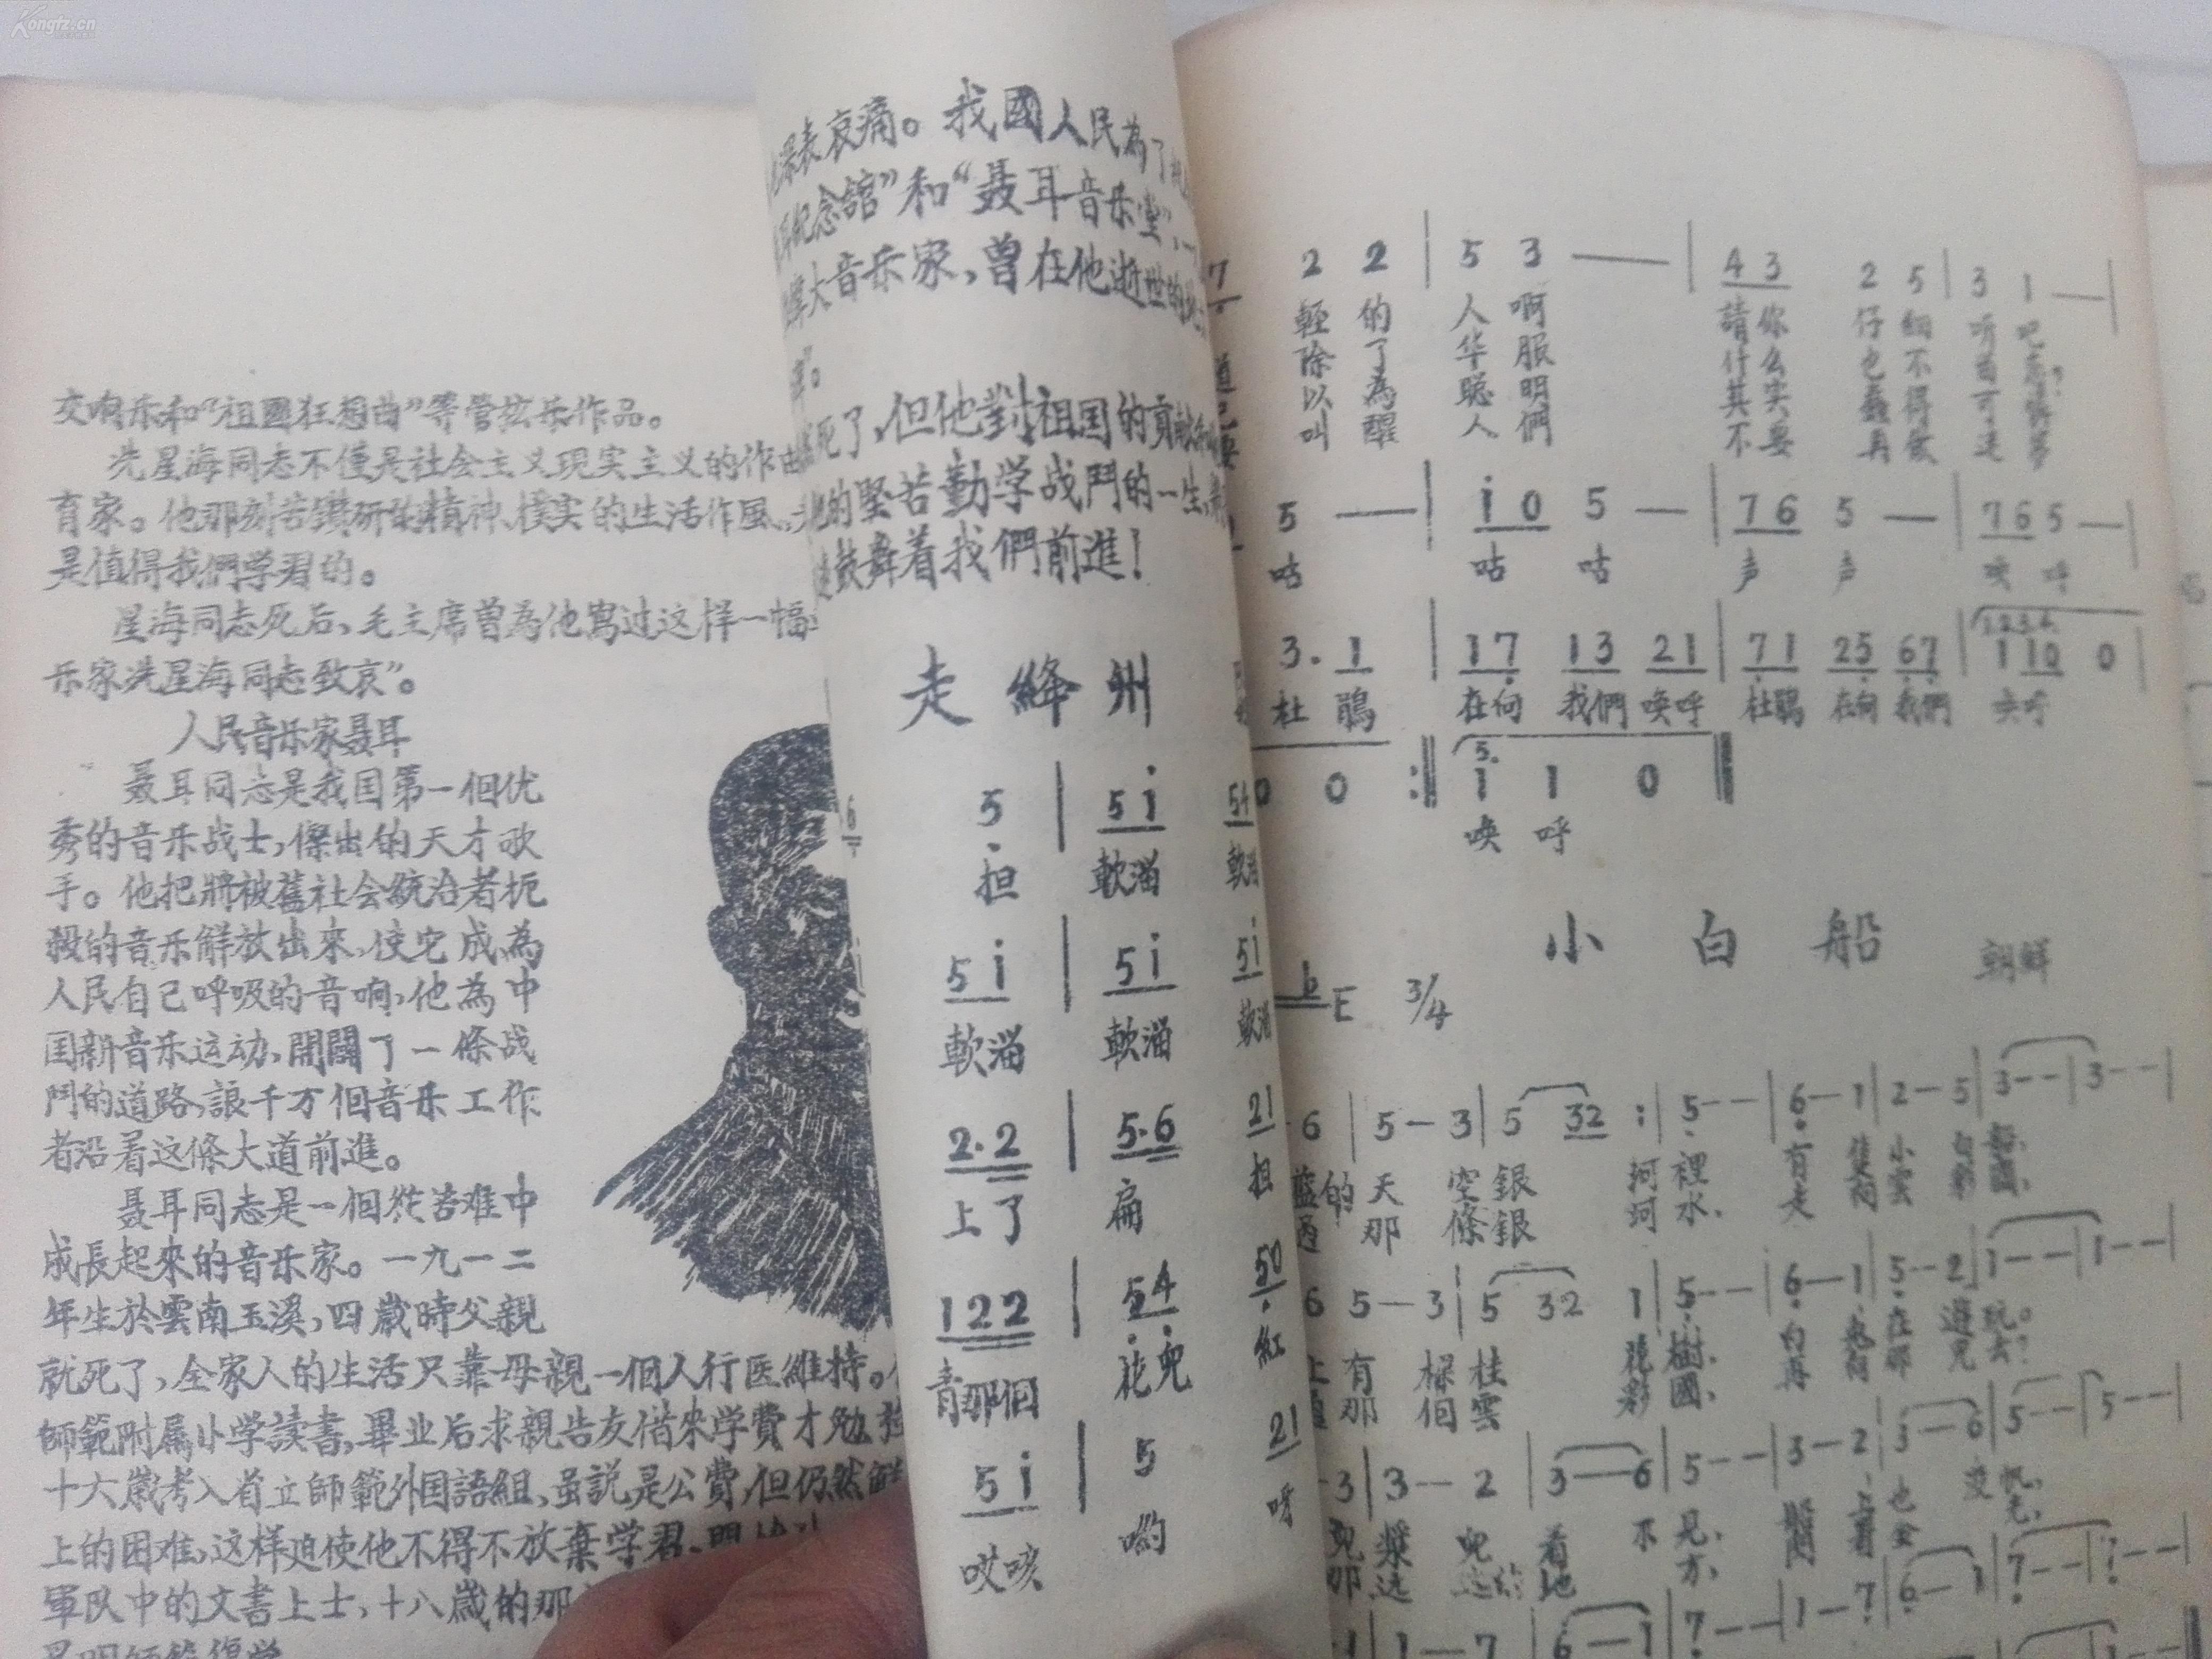 Kongfz.cn
交响乐和"祖國狂想曲"等管弦乐作品。
冼星海同志不僅是社会主义現実主义的作曲
育家。他那刻苦鑽研的精神、樸実的生活作風、
是值得我們学習的。
星海同志死后、毛主席曾為他寫过这样一幅
乐家冼星海同志致哀"。
人民音乐家聂耳
聂耳同志是我国第一個优
秀的音乐战士,傑出的天才歌
手。他把將被舊社会統治者扼
殺的音乐解放出來,使它成為
人民自己呼吸的音响,他為中
国新音乐运动,開闢了一條战
鬥的道路,讓千万個音乐工作
者沿着这條大道前進。
聂耳同志是一個從苦难中
成長起來的音乐家。一九一二
年生於雲南玉溪,四歲時父親
就死了,全家人的生活只靠母親一個人行医維持。
師範附属小学読書,畢业后求親告友借來学費才勉
十六歲考入省立師範外国語組、虽説是公費,但仍然
上的困难,这样迫使他不得不放棄学習、
軍队中的文書上士,十八歲的那
深表哀痛。我國人民為了
紀念館"和"聂耳音乐堂",
大音乐家,曾在他逝世的
死了,但他對祖国的貢献
的堅苦勤学战鬥的一生,
鼓舞着我們前進!
走絳州
5 | 5 i
担 軟溜 軟溜
5 i | 5 i 5 i
軟溜 軟溜 軟溜
2·2 | 5·6 21
上了 扁 担
122 | 54 50
青那個 花兒 紅
5 i | 5 21
哎咳 喲 呀
7 2 2 | 5 3 — | 4 3 2 5 | 3 1 — |
輕的人啊 請你仔細听吧
除了华服 什么也不
以為聪明 其实
叫醒人們 不要再
5 — | i 0 5 — | 7 6 5 — | 7 6 5 — |
咕 咕 咕 声 声 唤 呼
3. 1 | 1 7 1 3 2 1 | 7 1 2 5 6 7 | 1 10 0
杜鵑 在向 我們 唤呼 杜鵑 在向 我們 唤呼
0 :‖ 5. 1 1 0 ‖
唤 呼
小白船
朝鮮
bE 3/4
6 | 5 — 3 | 5 32 :| 5 - - | 6 — 1 | 2 — 5 | 3 - - | 3 - - |
藍的天 空銀 河裡 有隻小白船,
过那 條銀 河水, 走向雲彩國,
6 5 — 3 | 5 32 1 | 5 - - | 6 — 1 | 5 - 2 | 1 - - | 1 - - |
上有 棵桂 花樹, 白兔在遊玩。
那 個雲 彩國, 再向那兒去?
3 | 3 — 2 | 3 — 6 | 5 - - | 3 — 2 | 3 — 6 | 5 - - | 5 - - |
兒槳 兒看 不見, 船上也没帆,
1 | 1 — 7 | 6 — 1 | 7 - - | 1 — 7 | 6 — 1 | 7 - - | 7 - - |